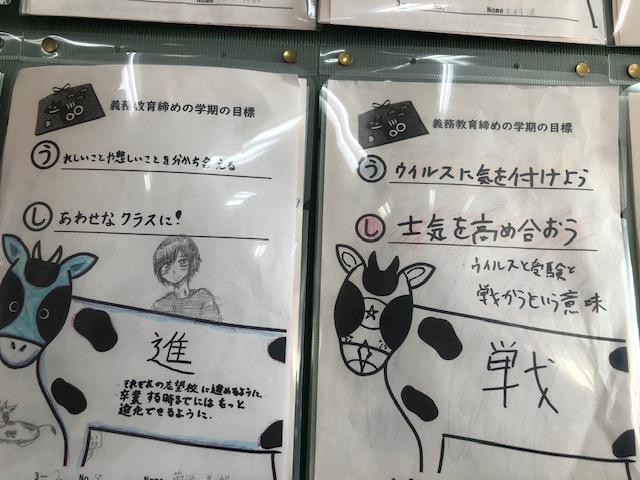 Name
Nome
義務教育締めの学期の目標
う れしいことや悲しいことを分かち合える
し あわせなクラスに!
進
それぞれの志望校に進めるように。
卒業する時までにはもっと
進化できるように.
3-2 No.8 Name
義務教育締めの学期の目標
う ウイルスに気を付けよう
し 士気を高め合おう
ウイルスと受験と
戦かうという意味
戦
3- No. Name